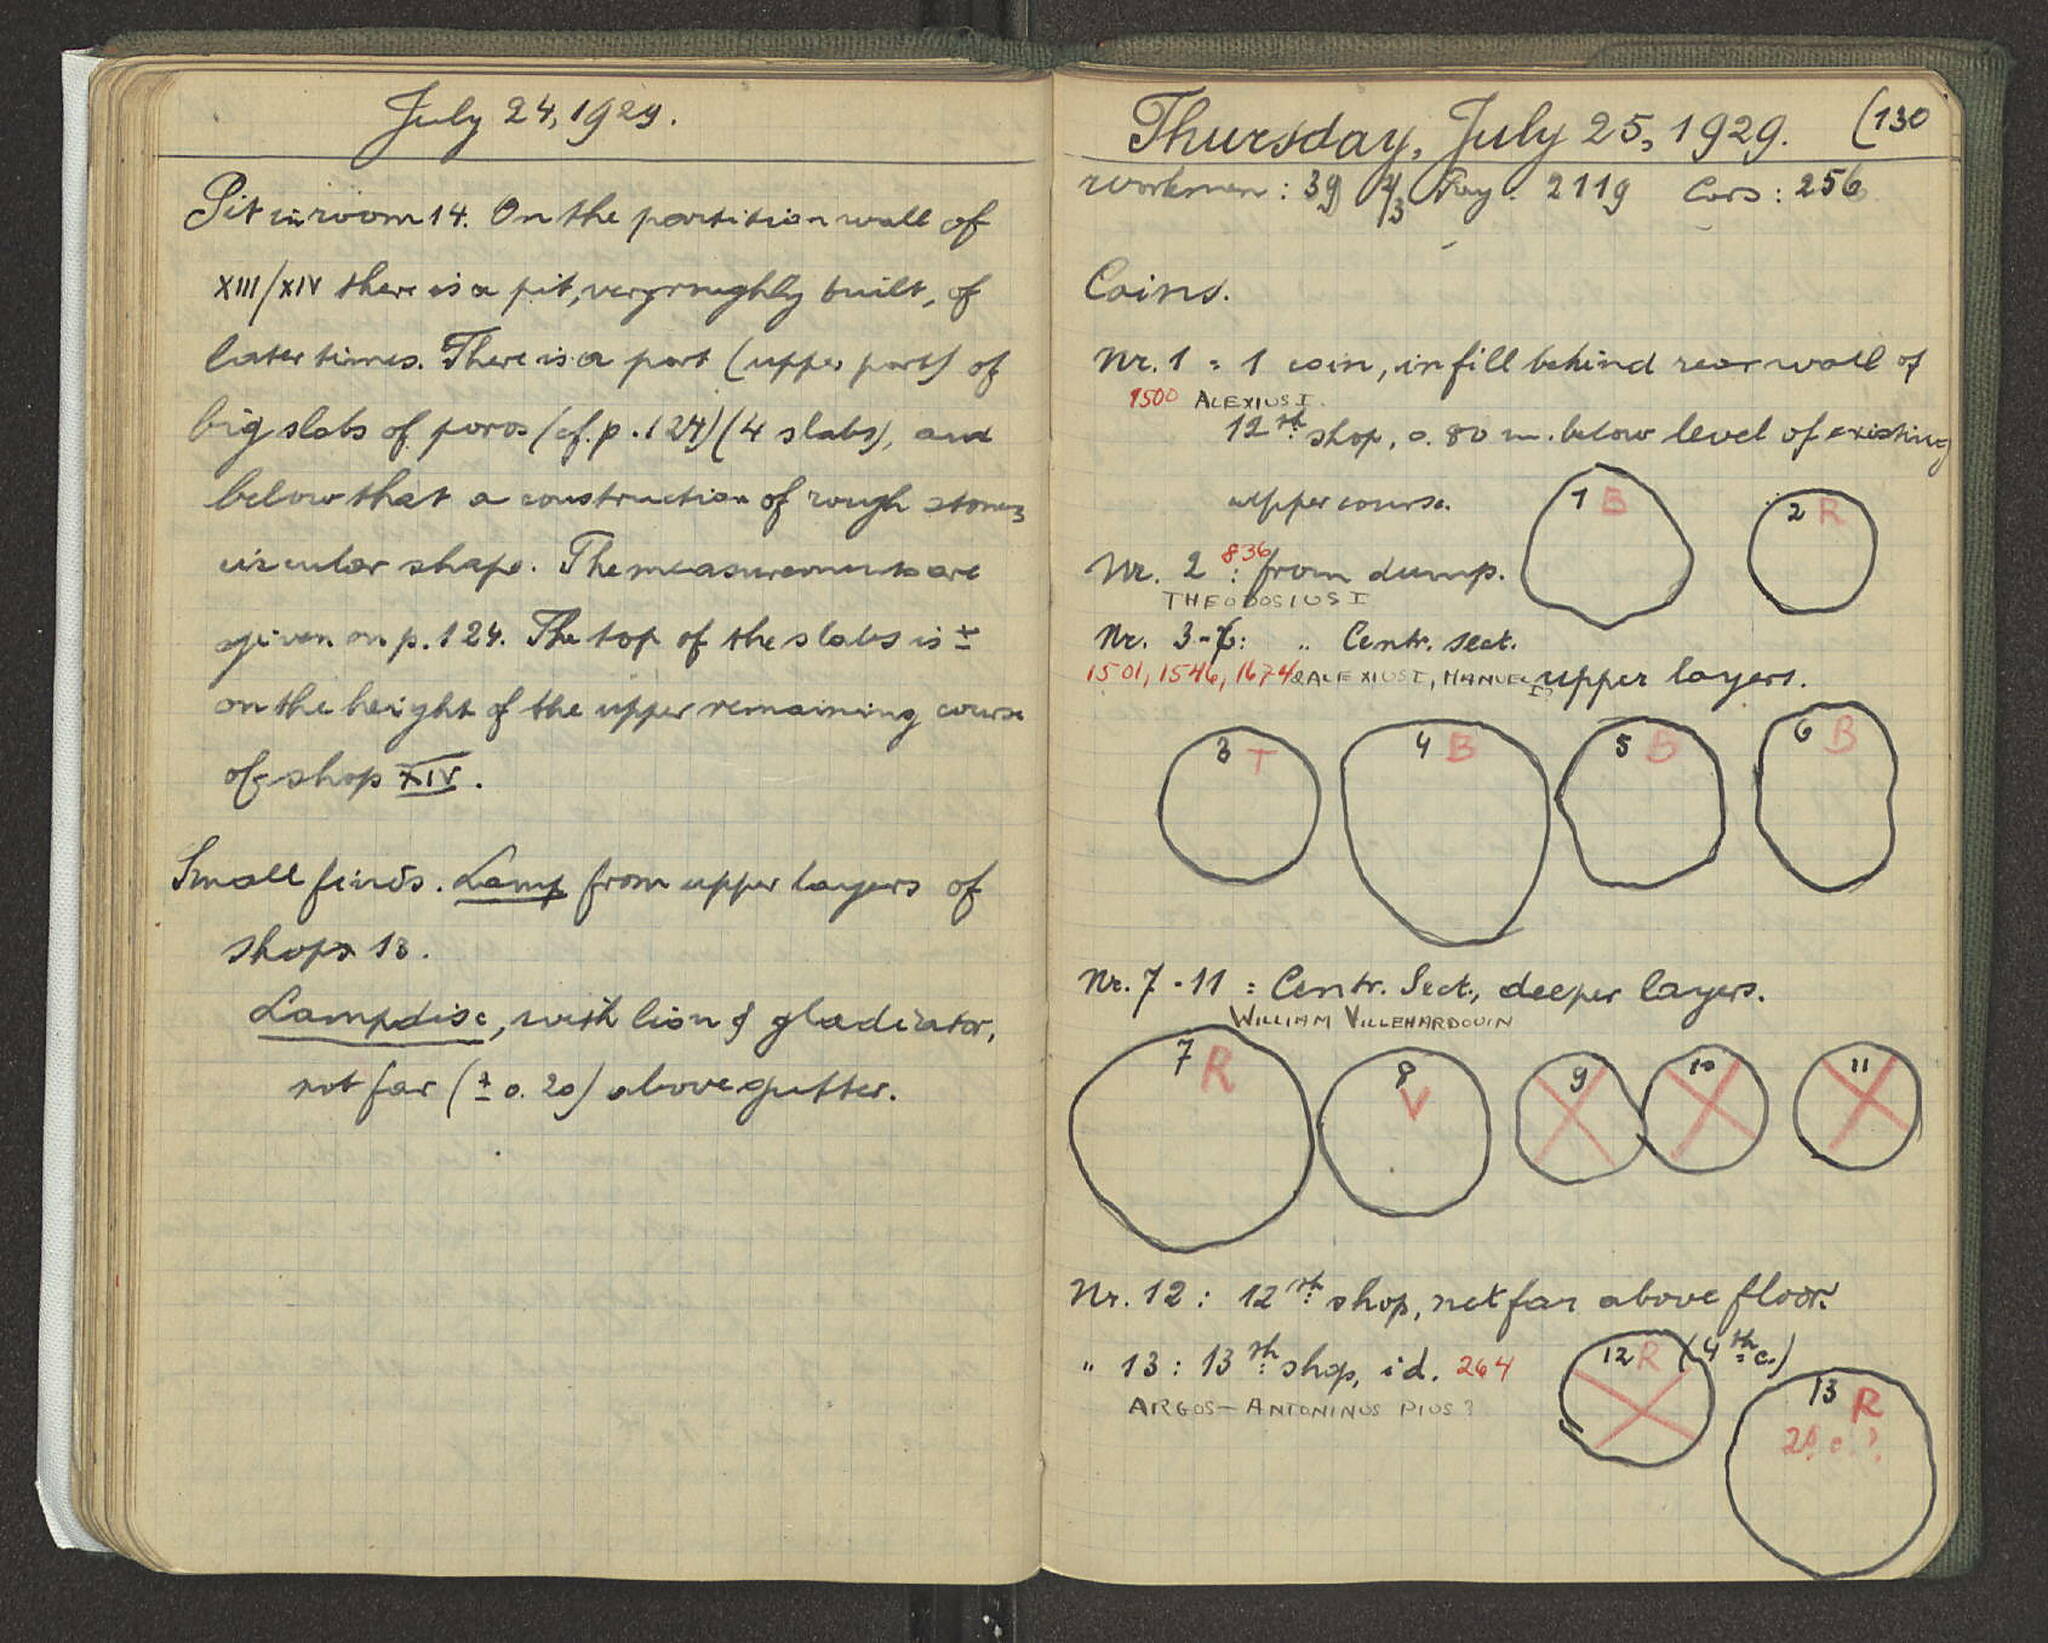 July 24, 1929.
Pit in room 14. On the partition wall of
XIII/XIV there is a pit, very roughly built, of
later times. There is a part (upper part) of
big slabs of poros (cf. p. 124) (4 slabs), and
below that a construction of rough stones
circular shape. The measurements are
given on p. 124. The top of the slabs is ±
on the height of the upper remaining course
of shop XIV.
Small finds. Lamp from upper layers of
shop 13.
Lampdisc, with lion & gladiator,
not far (± 0.20) above gutter.
(130
Thursday, July 25, 1929.
workmen: 39 Pay: 2119 Cars: 256
Coins.
Nr. 1 = 1 coin, in fill behind rear wall of
1500 ALEXIUS I.
12th shop, 0.80 m. below level of existing
upper course.
1 B
2 R
836
Nr. 2: from dump.
THEODOSIUS I
Nr. 3-6: " Centr. sect.
1501, 1546, 1674 2 ALEXIUS I, MANUEL I? upper layers.
3 T
4 B
5 B
6 B
Nr. 7-11 = Centr. Sect., deeper layers.
WILLIAM VILLEHARDOUIN
7 R
8 V
9
10
11
Nr. 12: 12th shop, not far above floor.
" 13: 13th shop, id. 264
ARGOS – ANTONINUS PIUS?
12 R (4th c.)
13 R